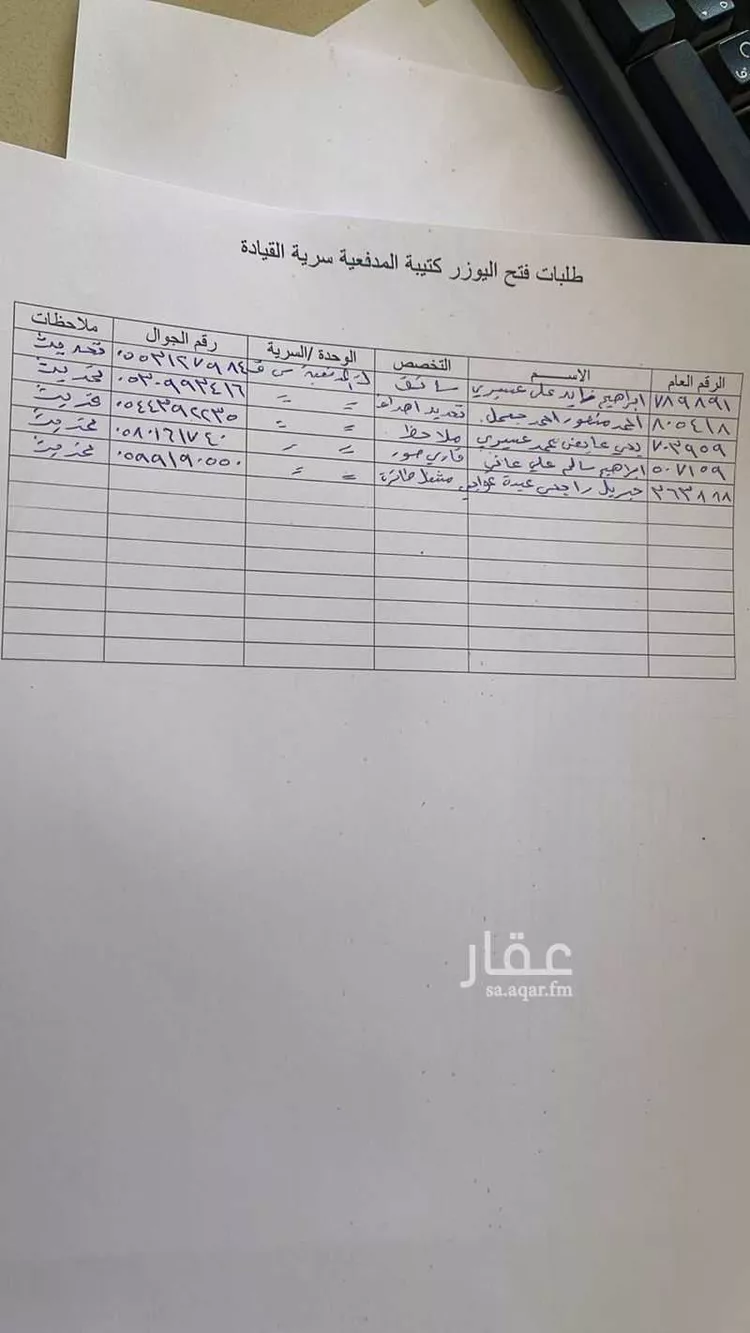 طلبات فتح اليوزر كتيبة المدفعية سرية القيادة
الرقم العام الاســـم التخصص الوحدة /السرية رقم الجوال ملاحظات
٧٨٩٨٩١ ابراهيم فايد علي عسيري سائق ك المدفعية س ق ٠٥٥٣١٢٧٩٨٤ تحديث
٨٠٥٤١٨ احمد منصور احمد تحديد اهداف = = ٠٥٣٠٩٩٣٤١٦ تحديث
٧٠٣٩٥٩ يحي عايض محمد عسيري ملاحظ = = ٠٥٤٤٣٩٢٢٣٥ تحديث
٥٠٧١٥٩ ابراهيم سالم علي عاتي قاري صور = = ٠٥٨٠١٦١٧٤٠ تحديث
٣٦٣٨٨٨ جبريل راجحي عبدة عواجي مشغل طائرة = = ٠٥٩٩١٩٠٥٥٠ تحديث
عقار
sa.aqar.fm